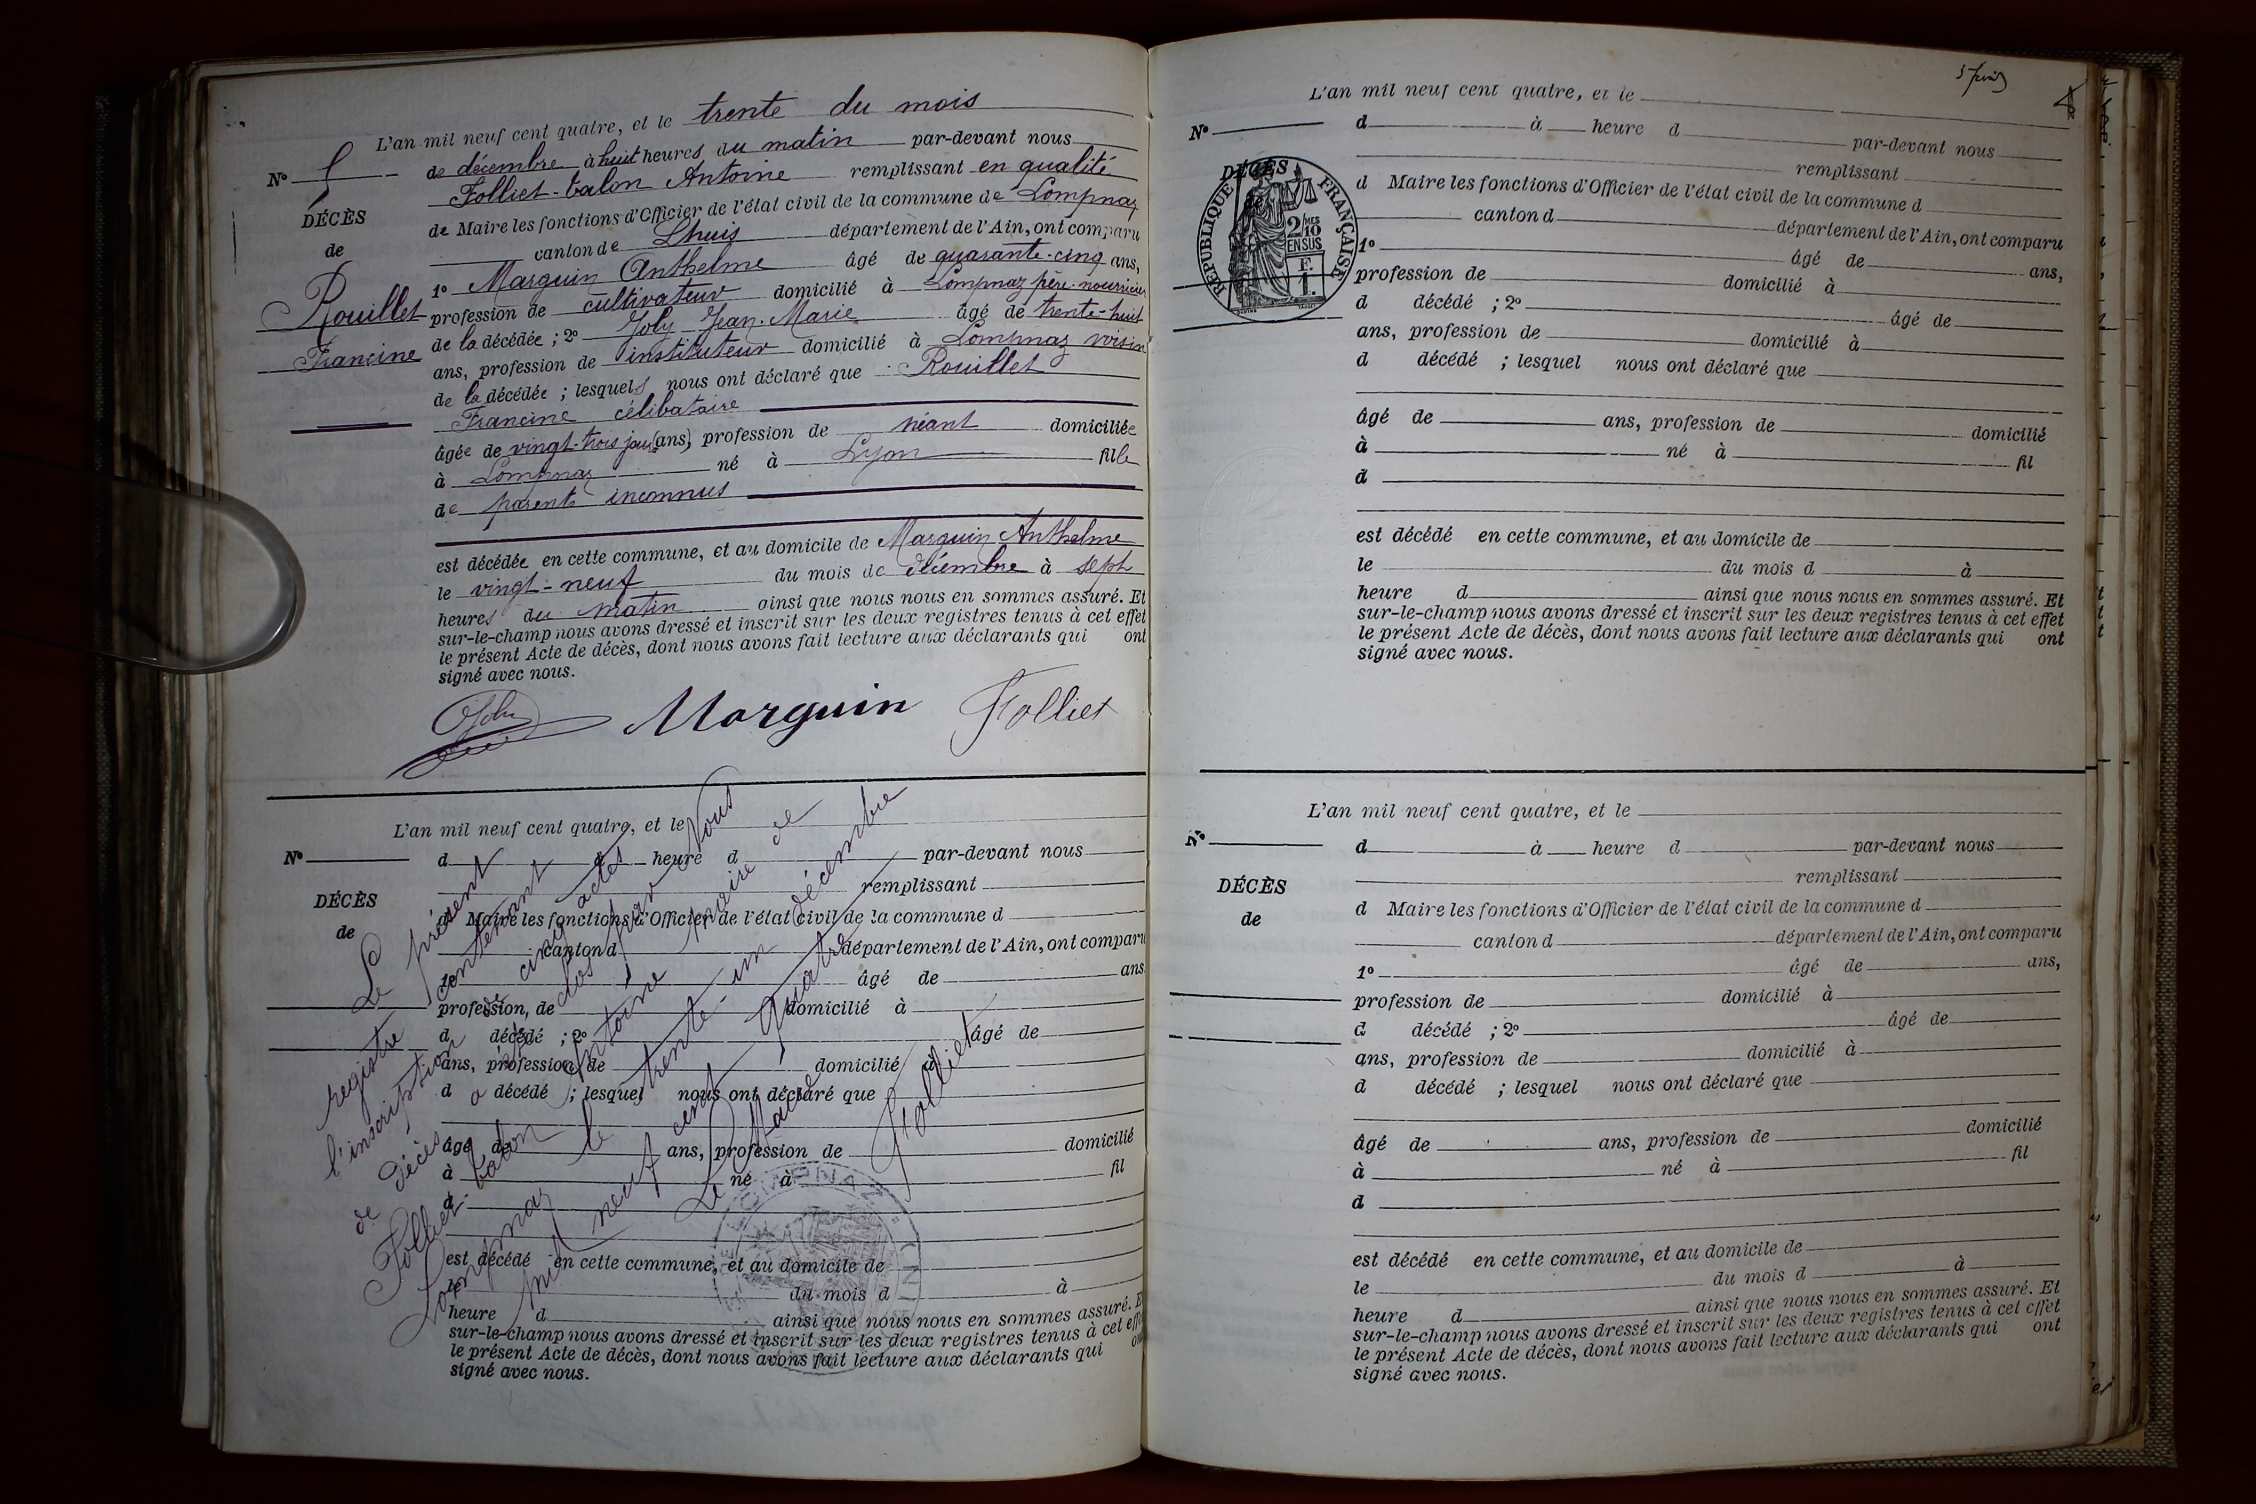 L'an mil neuf cent quatre, et le trente du mois
de décembre à huit heures du matin par-devant nous
Folliet-talon Antoine remplissant en qualité
de Maire les fonctions d'Officier de l'état civil de la commune de Lompnaz
canton de Lhuis département de l'Ain, ont comparu
1º Marguin Anthelme âgé de quarante-cinq ans,
profession de cultivateur domicilié à Lompnaz père nourricier
de la décédée ; 2º Joly Jean-Marie âgé de trente-huit
ans, profession de instituteur domicilié à Lompnaz voisin
de la décédée ; lesquels nous ont déclaré que Rouillet
Francine célibataire
âgée de vingt-trois jours (ans), profession de néant domiciliée
à Lompnaz né à Lyon fille
de parents inconnus
est décédée en cette commune, et au domicile de Marguin Anthelme
le vingt-neuf du mois de décembre à sept
heures du matin ainsi que nous nous en sommes assuré. Et
sur-le-champ nous avons dressé et inscrit sur les deux registres tenus à cet effet
le présent Acte de décès, dont nous avons fait lecture aux déclarants qui ont
signé avec nous.
Nº 5
DÉCÈS
de
Rouillet
Francine
Joly Marguin Folliet
L'an mil neuf cent quatre, et le
Nº
d à heure d par-devant nous
DÉCÈS
de
remplissant
d Maire les fonctions d'Officier de l'état civil de la commune d
canton d département de l'Ain, ont comparu
1º âgé de ans
profession de domicilié à
d décédé ; 2º âgé de
ans, profession de domicilié à
d décédé ; lesquel nous ont déclaré que
âgé de ans, profession de domicilié
à né à fil
d
est décédé en cette commune, et au domicile de
le du mois d à
heure d ainsi que nous nous en sommes assuré. Et
sur-le-champ nous avons dressé et inscrit sur les deux registres tenus à cet effet
le présent Acte de décès, dont nous avons fait lecture aux déclarants qui ont
signé avec nous.
Le présent
registre contenant
l'inscription de cinq actes
de décès a été clos par Nous
Folliet talon Antoine maire de
Lompnaz le trente-un décembre
mil neuf cent quatre
Le Maire
Folliet
LOMPNAZ
AIN
L'an mil neuf cent quatre, et le
Nº
d à heure d par-devant nous
DÉCÈS
RÉPUBLIQUE FRANÇAISE
2/10 MES
EN SUS
F.
1.
remplissant
d Maire les fonctions d'Officier de l'état civil de la commune d
canton d département de l'Ain, ont comparu
1º âgé de ans,
profession de domicilié à
d décédé ; 2º âgé de
ans, profession de domicilié à
d décédé ; lesquel nous ont déclaré que
âgé de ans, profession de domicilié
à né à fil
d
est décédé en cette commune, et au domicile de
le du mois d à
heure d ainsi que nous nous en sommes assuré. Et
sur-le-champ nous avons dressé et inscrit sur les deux registres tenus à cet effet
le présent Acte de décès, dont nous avons fait lecture aux déclarants qui ont
signé avec nous.
L'an mil neuf cent quatre, et le
Nº
d à heure d par-devant nous
DÉCÈS
de
remplissant
d Maire les fonctions d'Officier de l'état civil de la commune d
canton d département de l'Ain, ont comparu
1º âgé de ans,
profession de domicilié à
d décédé ; 2º âgé de
ans, profession de domicilié à
d décédé ; lesquel nous ont déclaré que
âgé de ans, profession de domicilié
à né à fil
d
est décédé en cette commune, et au domicile de
le du mois d à
heure d ainsi que nous nous en sommes assuré. Et
sur-le-champ nous avons dressé et inscrit sur les deux registres tenus à cet effet
le présent Acte de décès, dont nous avons fait lecture aux déclarants qui ont
signé avec nous.